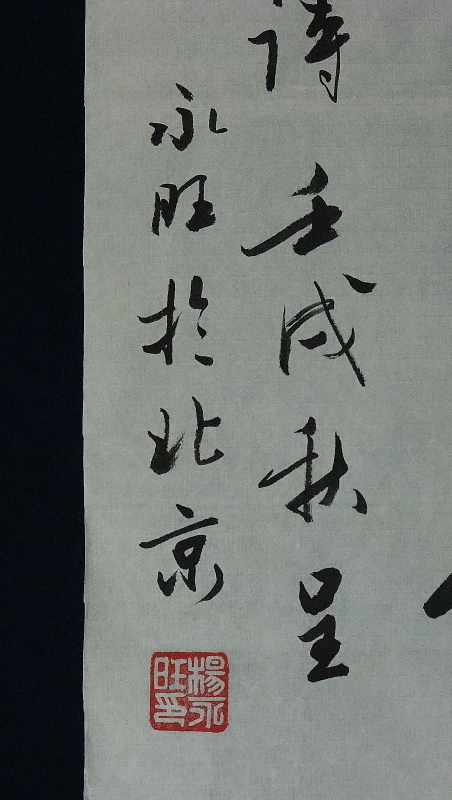 詩壬戌秋呈
永旺於北京
楊永
旺印